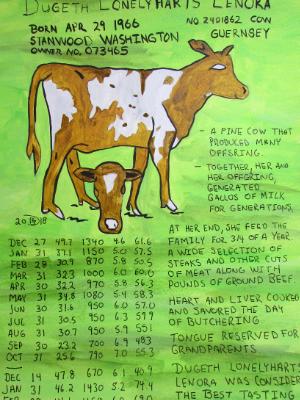 DUGETH LONELYHARTS LENORA
BORN APR 29 1966
NO 2401862 COW
STANWOOD WASHINGTON
GUERNSEY
OWNER NO. 073465
- A FINE COW THAT
PRODUCED MANY
OFFSRING.
- TOGETHER, HER AND
HER OFFSRING,
GENERATED
GALLOS OF MILK
FOR GENERATIONS.
2018
DEC 27 49.7 1340 4.6 61.6
JAN 31 37.1 1150 5.0 57.5
FEB 28 30.9 870 5.8 50.5
MAR 31 32.3 1000 6.0 60.0
APR 30 32.2 970 5.8 56.3
MAY 31 34.8 1080 5.4 58.3
JUN 30 31.6 950 6.0 57.0
JUL 31 30.5 950 6.3 57.9
AUG 31 30.7 950 5.9 55.1
SEP 30 23.2 700 6.9 48.3
OCT 31 25.6 790 7.0 55.3
DEC 14 47.8 670 6.1 40.9
JAN 31 46.2 1430 5.2 74.4
AT HER END, SHE FEED THE
FAMILY FOR 3/4 OF A YEAR
A WIDE SELECTION OF
STEAKS AND OTHER CUTS
OF MEAT ALONG WITH
POUNDS OF GROUND BEEF.
HEART AND LIVER COOKED
AND SAVORED THE DAY
OF BUTCHERING
TONGUE RESERVED FOR
GRANDPARENTS
DUGETH LONELYHARTS
LENORA WAS CONSIDER
THE BEST TASTING